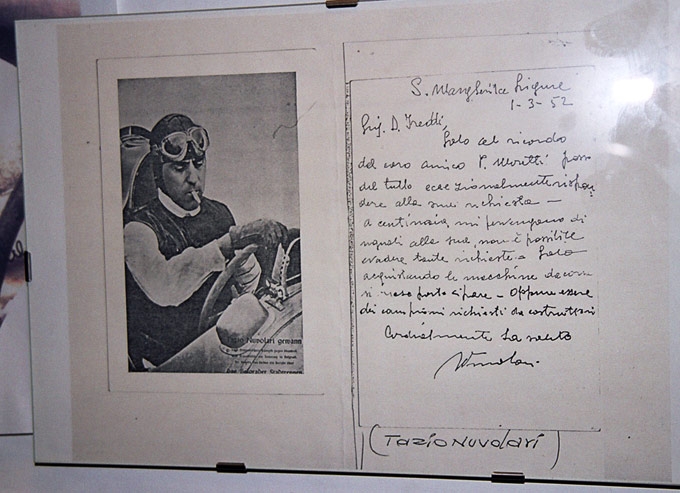 Tazio Nuvolari gewann
S. Margherita Ligure
1-3-52
Sig. D.
Solo al ricordo
del caro amico P. Moretti posso
del tutto eccezionalmente rispon
dere alla sua richiesta -
a centinaia mi pervengono di
uguali alla sua, non è possibile
evadere tante richieste - Solo
acquistando le macchine da corsa
si può partecipare - Oppure essere
dei campioni richiesti da costruttori
Cordialmente La saluto
Nuvolari
(TAZIO NUVOLARI)